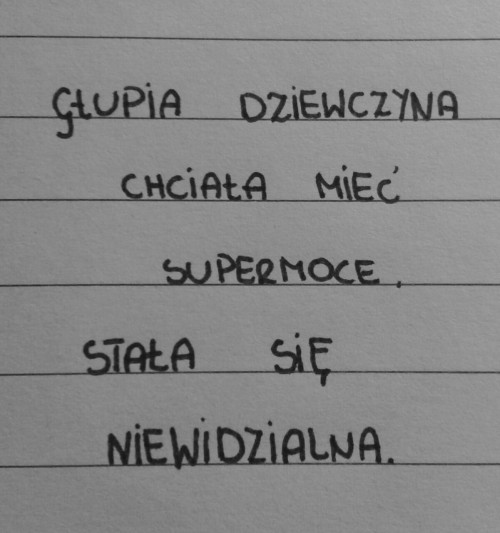 GŁUPIA DZIEWCZYNA
CHCIAŁA MIEĆ
SUPERMOCE.
STAŁA SIĘ
NIEWIDZIALNA.